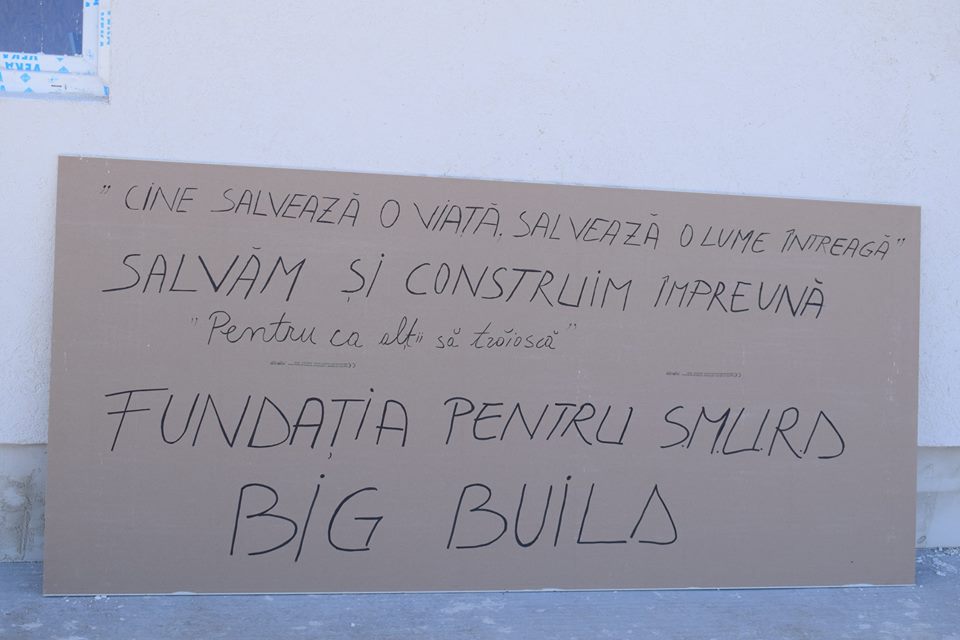 VERA
VERA
" CINE SALVEAZĂ O VIAȚĂ, SALVEAZĂ O LUME ÎNTREAGĂ"
SALVĂM ȘI CONSTRUIM ÎMPREUNĂ
"Pentru ca alții să trăiască"
FUNDAȚIA PENTRU S.M.U.R.D
BIG BUILD